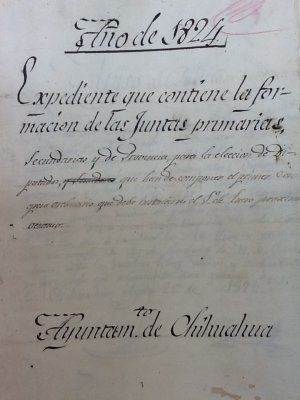 Año de 1824
Expediente que contiene la for-
macion de las Juntas primarias
Secundarias y de Provincia, para la eleccion de Di-
putados, que han de componer el primer Con-
greso ordinario que debe instalarse el 1º de Enero procsimo
venidero.
Ayuntam.to de Chihuahua